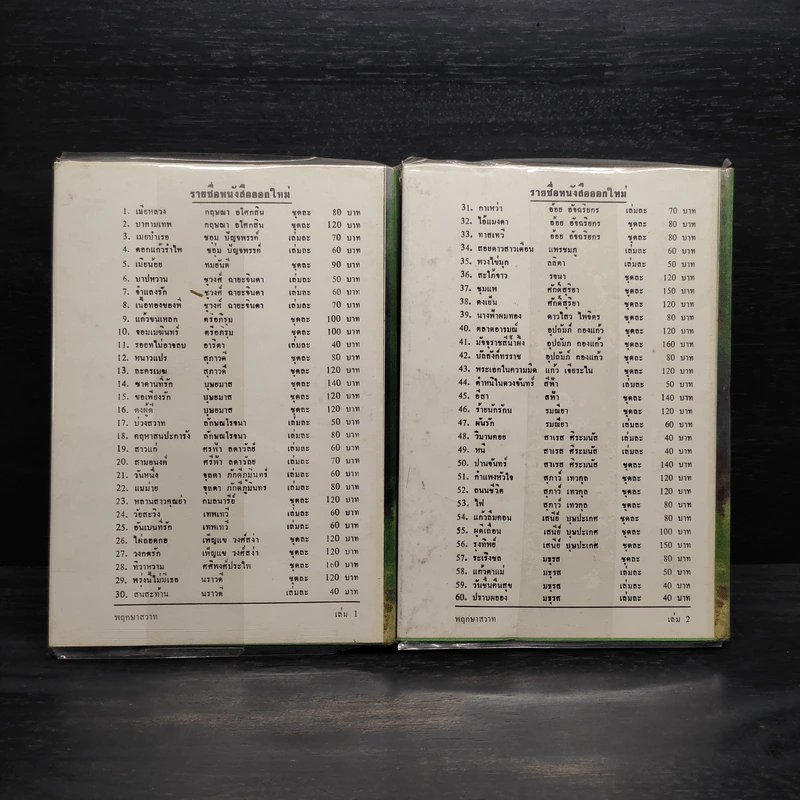 รายชื่อหนังสือออกใหม่
1. เมียหลวง กฤษณา อโศกสิน ชุดละ 80 บาท
2. บาดามเทพ กฤษณา อโศกสิน ชุดละ 120 บาท
3. เมียบำเรอ ชอุ่ม ปัญจพรรค์ เล่มละ 70 บาท
4. ดอกแก้วรำไพ ชอุ่ม ปัญจพรรค์ เล่มละ 60 บาท
5. เมียน้อย ทมยันตี ชุดละ 90 บาท
6. บาปหวาน ชูวงศ์ ฉายะจินดา เล่มละ 50 บาท
7. จำแลงรัก ชูวงศ์ ฉายะจินดา เล่มละ 60 บาท
8. เนื้อทองของพี่ ชูวงศ์ ฉายะจินดา เล่มละ 70 บาท
9. แก้วขนเหล็ก ตรีอภิรุม ชุดละ 100 บาท
10. จอมเมฆินทร์ ตรีอภิรุม ชุดละ 100 บาท
11. รอยทไม่อาจลบ อาริตา เล่มละ 40 บาท
12. หนาวแปร สุภาวดี ชุดละ 80 บาท
13. ละครเมฆ สุภาวดี ชุดละ 120 บาท
14. ซาตานที่รัก บุษยมาส ชุดละ 140 บาท
15. ขอเพียงรัก บุษยมาส ชุดละ 120 บาท
16. ดงผู้ดี บุษยมาส ชุดละ 120 บาท
17. บ่วงสวาท ลักษณโรจนา เล่มละ 50 บาท
18. คฤหาสนปะการัง ลักษณโรจนา เล่มละ 80 บาท
19. สาวแก่ ศรีฟ้า ลดาวัลย์ เล่มละ 60 บาท
20. สามอนงค์ ศรีฟ้า ลดาวัลย์ เล่มละ 70 บาท
21. วันหนึ่ง จุลดา ภักดีภูมินทร์ เล่มละ 60 บาท
22. แม่ม่าย จุลดา ภักดีภูมินทร เล่มละ 80 บาท
23. หลานสาวคุณย่า กมลนารีย์ ชุดละ 120 บาท
24. วัยสะวิง เทพเทวี เล่มละ 60 บาท
25. อันเบนที่รัก เทพเทวี เล่มละ 60 บาท
26. ไผ่ลอดกอ เพ็ญแข วงศ์สง่า ชุดละ 120 บาท
27. วงกตรัก เพ็ญแข วงศ์สง่า ชุดละ 120 บาท
28. ทิวาหวาม ศศิพงศ์ประไพ ชุดละ 160 บาท
29. พรุ่งนี้ไม่มีเธอ นราวดี ชุดละ 120 บาท
30. สนสะท้าน นราวดี เล่มละ 40 บาท
พฤกษาสวาท เล่ม 1
รายชื่อหนังสือออกใหม่
31. กาเหว่า อ้อย อัจฉริยกร เล่มละ 70 บาท
32. ไอ้แมงดา อ้อย อัจฉริยกร ชุดละ 80 บาท
33. ทาสเทวี อ้อย อัจฉริยกร ชุดละ 80 บาท
34. สอยดาวสาวเดือน แพรชมภู เล่มละ 60 บาท
35. พวงไข่มุก ลลิตา เล่มละ 50 บาท
36. สะใภ้จ้าว รจนา ชุดละ 120 บาท
37. ชุมแพ ศักดิ์สุริยา ชุดละ 150 บาท
38. ดงเย็น ศักดิ์สุริยา ชุดละ 120 บาท
39. นางฟ้าผมทอง ดาวไสว ไพจิตร ชุดละ 80 บาท
40. ตลาดอารมณ์ อุปถัมภ์ กองแก้ว ชุดละ 120 บาท
41. มัจจุราชสีน้ำผึ้ง อุปถัมภ์ กองแก้ว ชุดละ 160 บาท
42. บัลลังก์ทรราช อุปถัมภ์ กองแก้ว ชุดละ 80 บาท
43. พระเอกในความมืด แก้ว เจียระไน ชุดละ 120 บาท
44. ตำหนิในดวงจันทร์ สีฟ้า เล่มละ 50 บาท
45. อีสา สีฟ้า ชุดละ 140 บาท
46. ร้ายนักรักนะ รมณียา ชุดละ 120 บาท
47. ฝันรัก รมณียา เล่มละ 60 บาท
48. วิมานคอย สาเรส ศิระมนัส เล่มละ 40 บาท
49. หนี สาเรส ศิระมนัส เล่มละ 40 บาท
50. ปานจันทร์ สาเรส ศิระมนัส ชุดละ 140 บาท
51. กำแพงหัวใจ สุภาว์ เทวกุล ชุดละ 120 บาท
52. ถนนชีวิต สุภาว์ เทวกุล ชุดละ 120 บาท
53. ไฟ สุภาว์ เทวกุล ชุดละ 80 บาท
54. แก้วลืมคอน เสนีย์ บุษปะเกศ ชุดละ 80 บาท
55. ผุดเถื่อน เสนีย์ บุษปะเกศ ชุดละ 100 บาท
56. รุ้งทิพย์ เสนีย์ บุษปะเกศ ชุดละ 150 บาท
57. ระเริงชล มธุรส ชุดละ 80 บาท
58. แก้วตาแม่ มธุรส เล่มละ 50 บาท
59. วันชื่นคืนสุข มธุรส เล่มละ 40 บาท
60. ปราบพยอง มธุรส เล่มละ 40 บาท
พฤกษาสวาท เล่ม 2